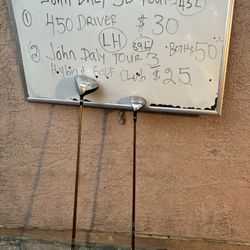 John Daly JD Tour 43L
① 450 DRIVER $30
LH 39L BOTH $50
② John Daly TOUR 3
Hybrid Golf Club $25